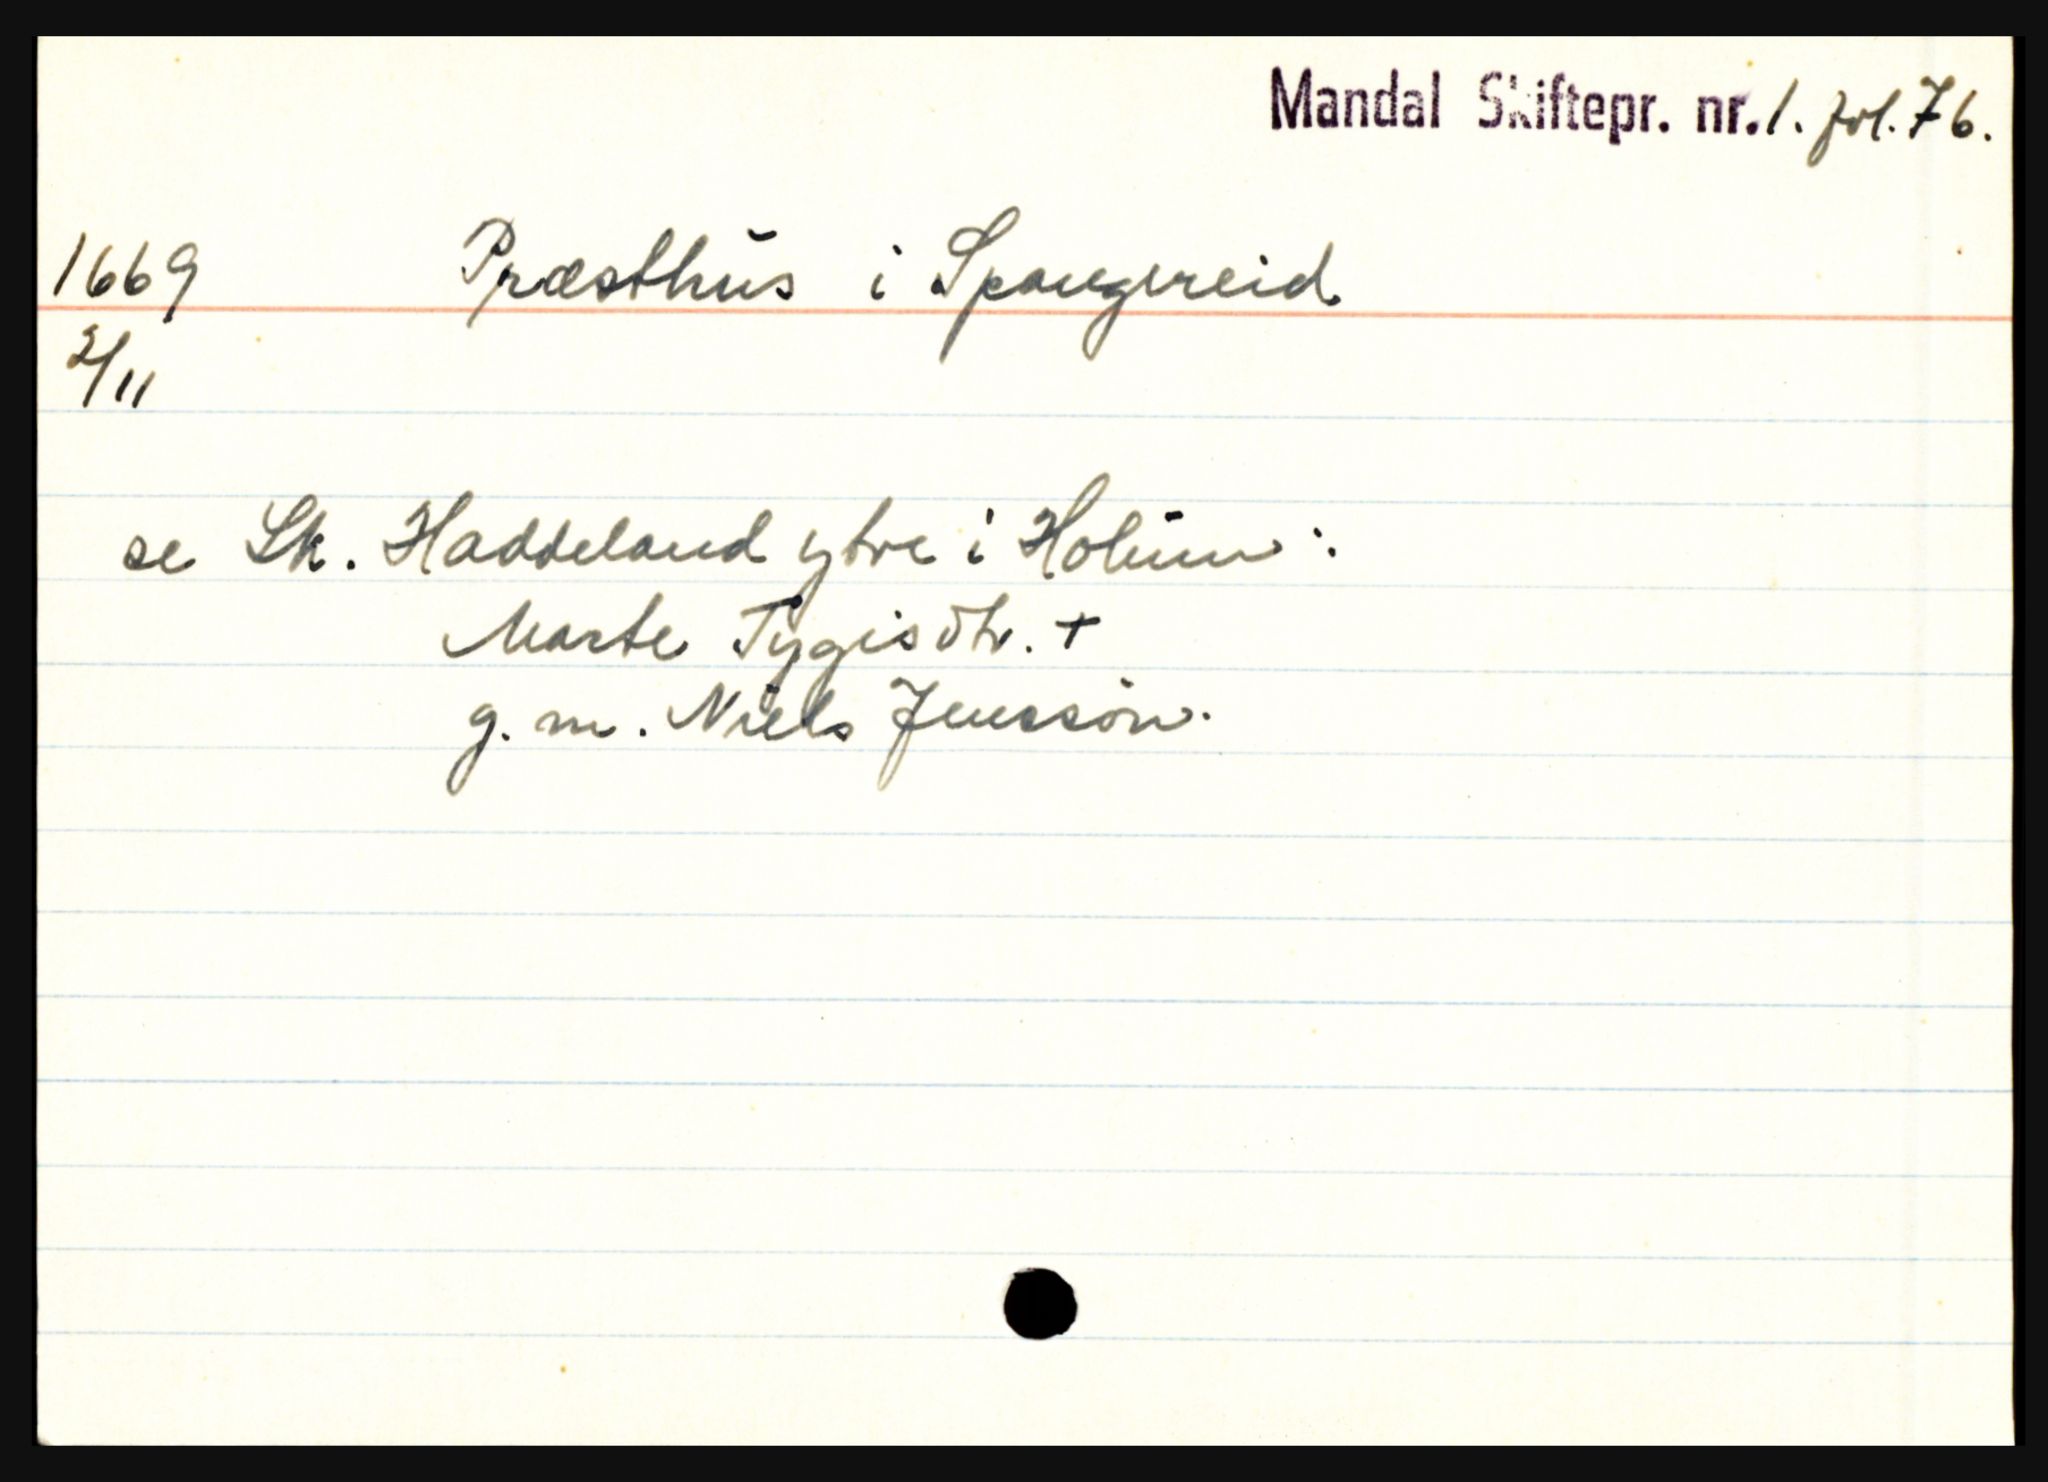 Mandal Skiftepr. nr. 1. fol. 76.
1669 Præsthus i Spangereid
2/11
se Sk. Haddeland ytre i Holum:
Marte Tygisdtr. +
g. m. Niels Jenssøn.